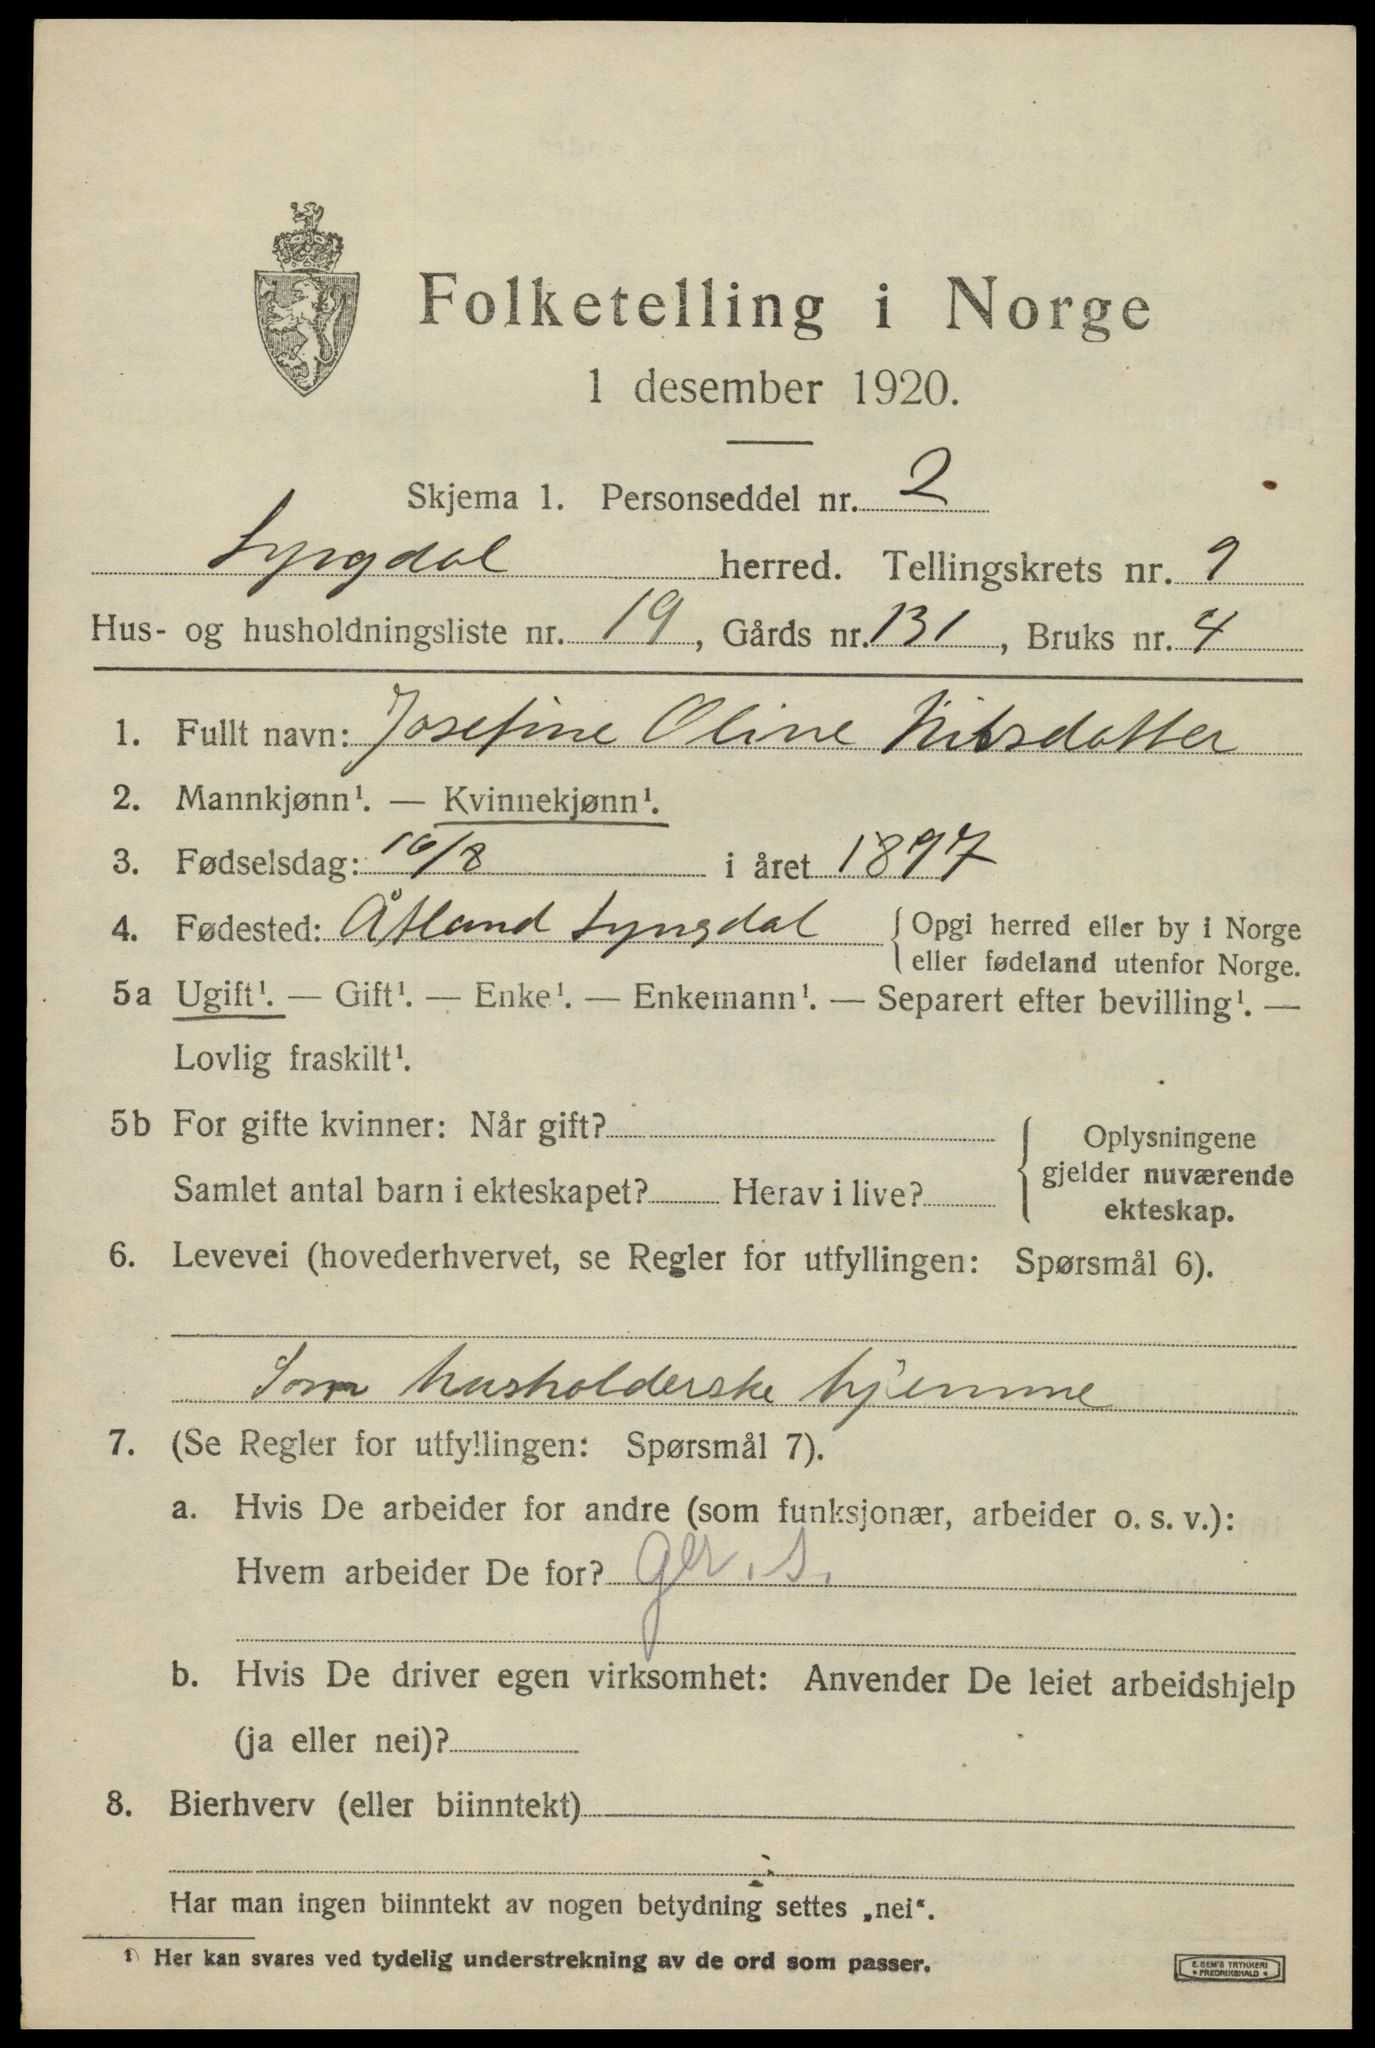 Folketelling i Norge
1 desember 1920.
Skjema 1. Personseddel nr. 2
Lyngdal herred. Tellingskrets nr. 9
Hus- og husholdningsliste nr. 19, Gårds nr. 131, Bruks nr. 4
1. Fullt navn: Josefine Oline Nilsdatter
2. Mannkjønn¹. — Kvinnekjønn¹.
3. Fødselsdag: 16/8 i året 1897
4. Fødested: Åtland Lyngdal { Opgi herred eller by i Norge
eller fødeland utenfor Norge.
5a Ugift¹. — Gift¹. — Enke¹. — Enkemann¹. — Separert efter bevilling¹. —
Lovlig fraskilt¹.
5b For gifte kvinner: Når gift?
Samlet antal barn i ekteskapet? Herav i live?
{ Oplysningene
gjelder nuværende
ekteskap.
6. Levevei (hovederhvervet, se Regler for utfyllingen: Spørsmål 6).
Som husholderske hjemme
7. (Se Regler for utfyllingen: Spørsmål 7).
a. Hvis De arbeider for andre (som funksjonær, arbeider o. s. v.):
Hvem arbeider De for? ger. s.
b. Hvis De driver egen virksomhet: Anvender De leiet arbeidshjelp
(ja eller nei)?
8. Bierhverv (eller biinntekt)
Har man ingen biinntekt av nogen betydning settes „nei“.
¹) Her kan svares ved tydelig understrekning av de ord som passer.
E. SEM'S TRYKKERI
• FREDRIKSHALD •